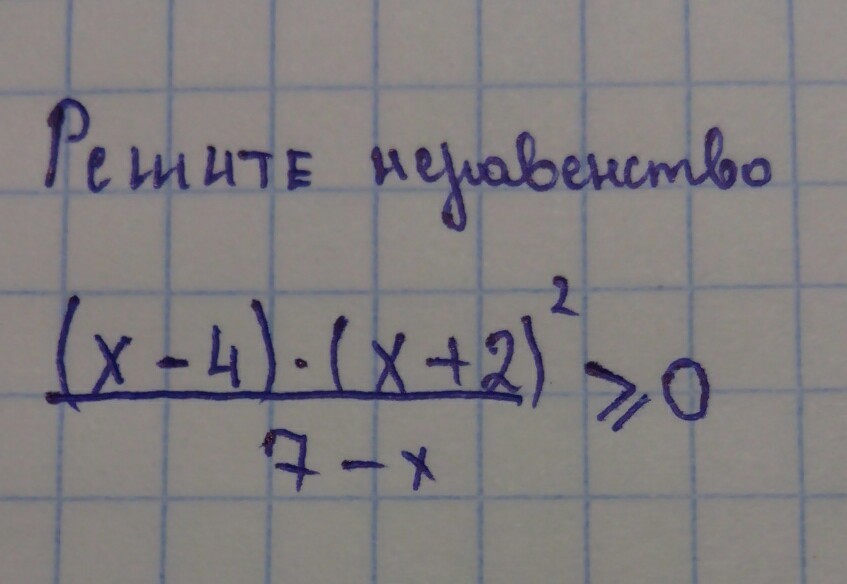 Решите неравенство
(x - 4) · (x + 2)²
7 - x
⩾ 0